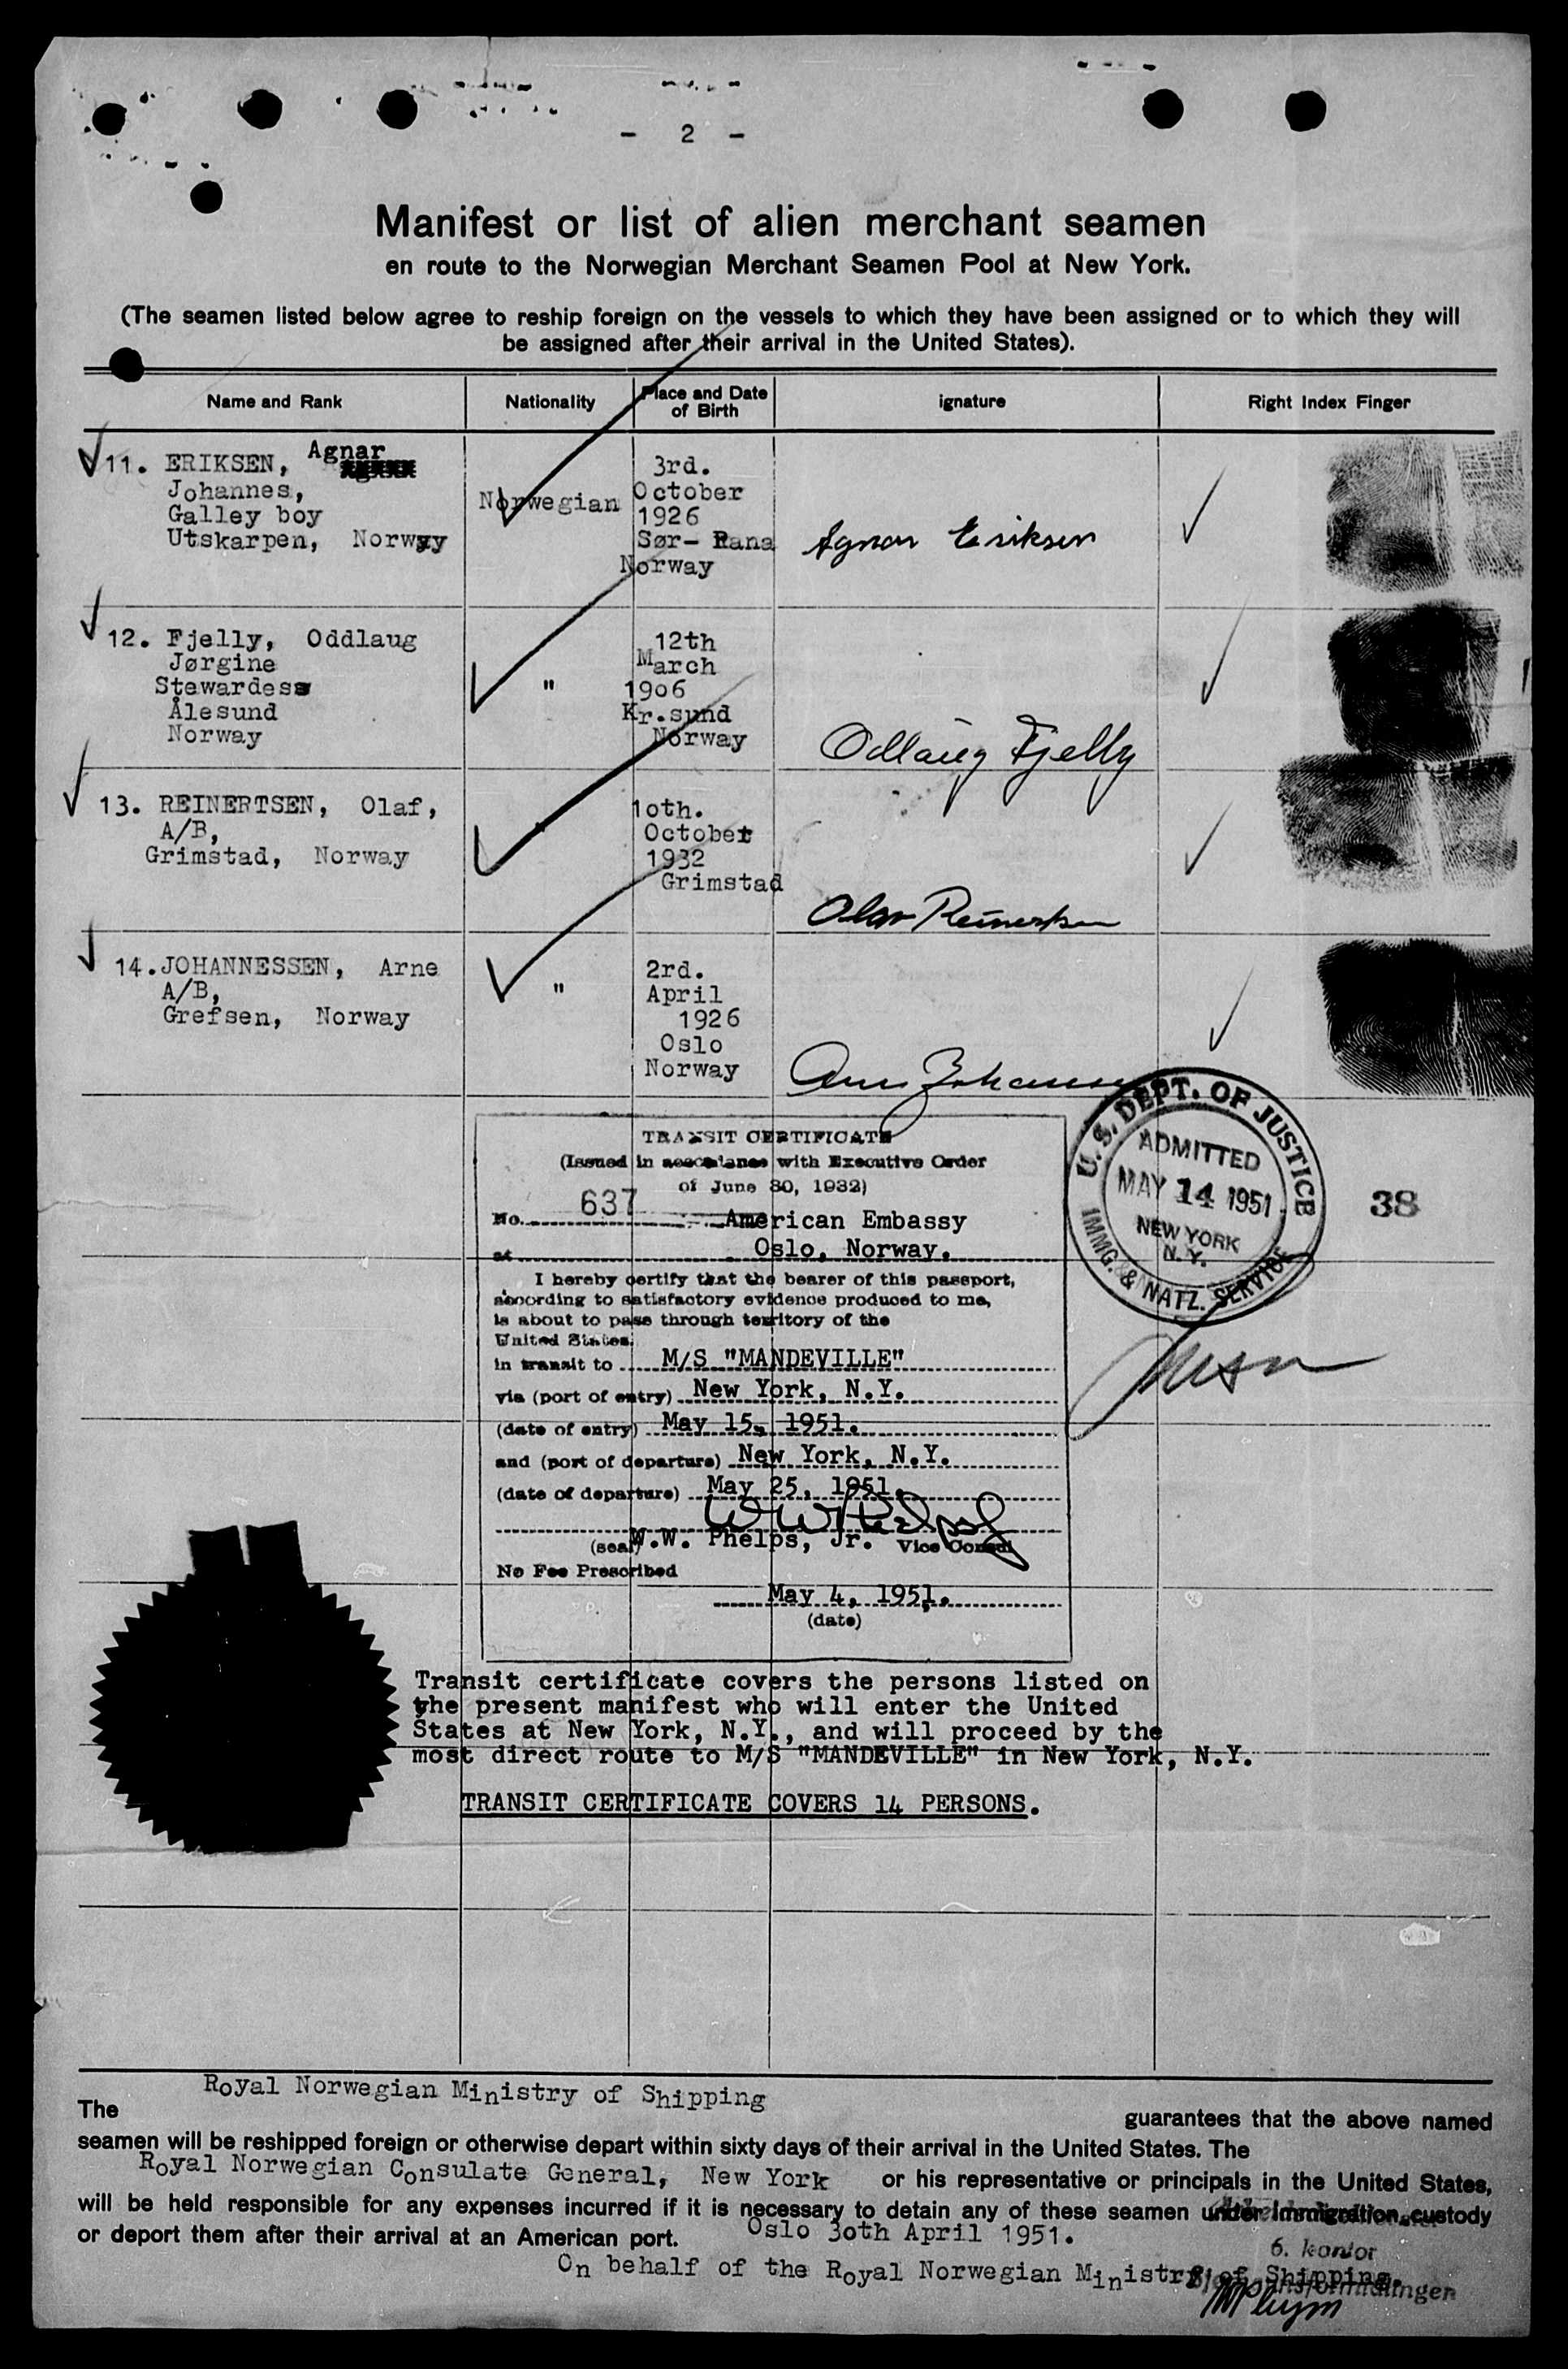 - 2 -
Manifest or list of alien merchant seamen
en route to the Norwegian Merchant Seamen Pool at New York.
(The seamen listed below agree to reship foreign on the vessels to which they have been assigned or to which they will
be assigned after their arrival in the United States).
Name and Rank
Nationality
Place and Date
of Birth
ignature
Right Index Finger
11. ERIKSEN, Agnar
Johannes,
Galley boy
Utskarpen, Norway
Norwegian
3rd.
October
1926
Sør- Rana
Norway
Agnar Eriksen
12. Fjelly, Oddlaug
Jørgine
Stewardess
Ålesund
Norway
"
12th
March
1906
Kr.sund
Norway
Odlaug Fjelly
13. REINERTSEN, Olaf,
A/B,
Grimstad, Norway
"
1oth.
October
1932
Grimstad
Olav Reinertsen
14. JOHANNESSEN, Arne
A/B,
Grefsen, Norway
"
2rd.
April
1926
Oslo
Norway
Arne Johannessen
TRANSIT CERTIFICATE
(Issued in accordance with Executive Order
of June 30, 1932)
No. 637 American Embassy
at Oslo, Norway.
I hereby certify that the bearer of this passport,
according to satisfactory evidence produced to me,
is about to pass through territory of the
United States
in transit to M/S "MANDEVILLE"
via (port of entry) New York, N.Y.
(date of entry) May 15, 1951.
and (port of departure) New York, N.Y.
(date of departure) May 25, 1951.
(seal) W.W. Phelps, Jr. Vice Consul
No Fee Prescribed
May 4, 1951.
(date)
U.S. DEPT. OF JUSTICE
ADMITTED
MAY 14 1951
NEW YORK
N.Y.
IMMG. & NATZ. SERVICE
38
Transit certificate covers the persons listed on
the present manifest who will enter the United
States at New York, N.Y., and will proceed by the
most direct route to M/S "MANDEVILLE" in New York, N.Y.
TRANSIT CERTIFICATE COVERS 14 PERSONS.
Royal Norwegian Ministry of Shipping
The guarantees that the above named
seamen will be reshipped foreign or otherwise depart within sixty days of their arrival in the United States. The
Royal Norwegian Consulate General, New York or his representative or principals in the United States,
will be held responsible for any expenses incurred if it is necessary to detain any of these seamen under immigration custody
or deport them after their arrival at an American port. Oslo 3oth April 1951.
6. kontor
On behalf of the Royal Norwegian Ministry of Shipping.